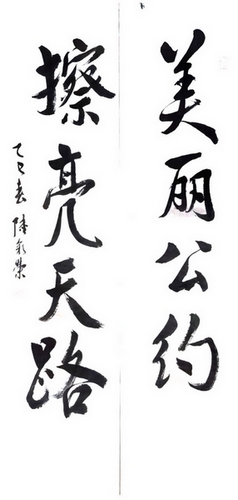 美丽公约
擦亮天路
乙巳春